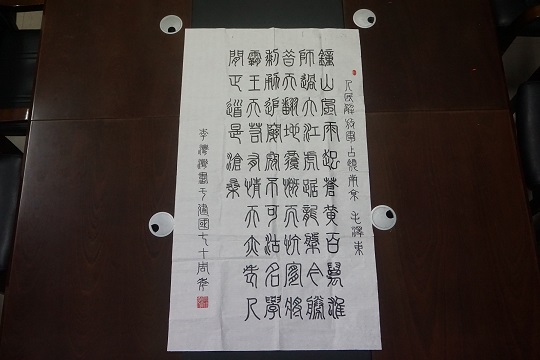 人民解放軍占領南京 毛澤東
鐘山風雨起蒼黃百萬雄
師過大江虎踞龍盤今勝
昔天翻地覆慨而慷宜將
剩勇追窮寇不可沽名學
霸王天若有情天亦老人
間正道是滄桑
李灣灣書于建國七十周年